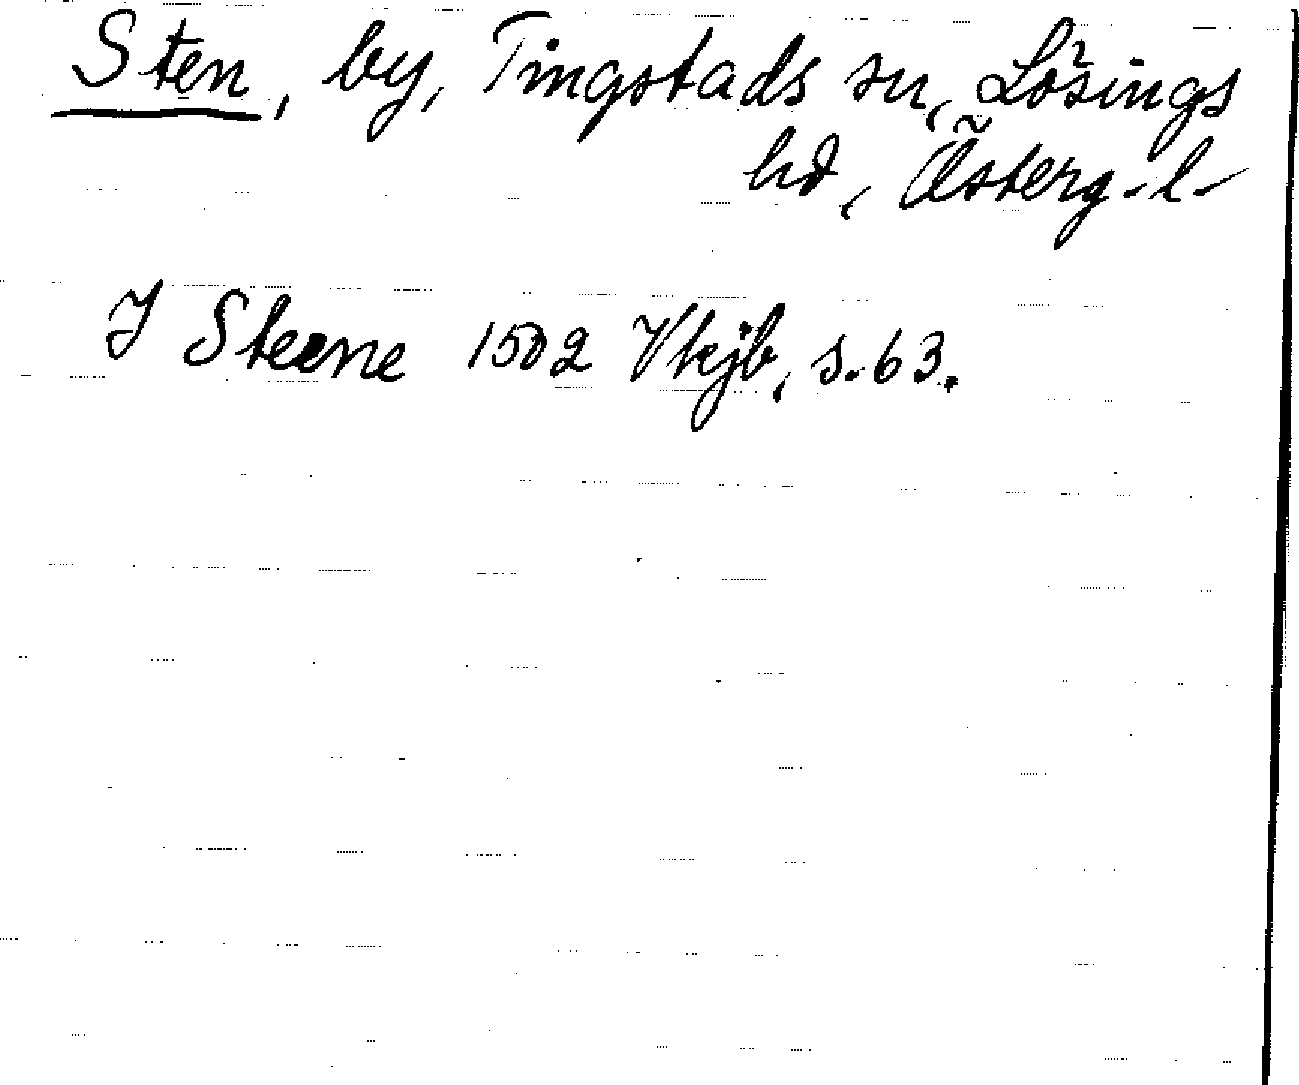 Sten, by, Tingstads sn, Lösings
hd, Österg.l.
I Steene 1502 Vkjb, s. 63.